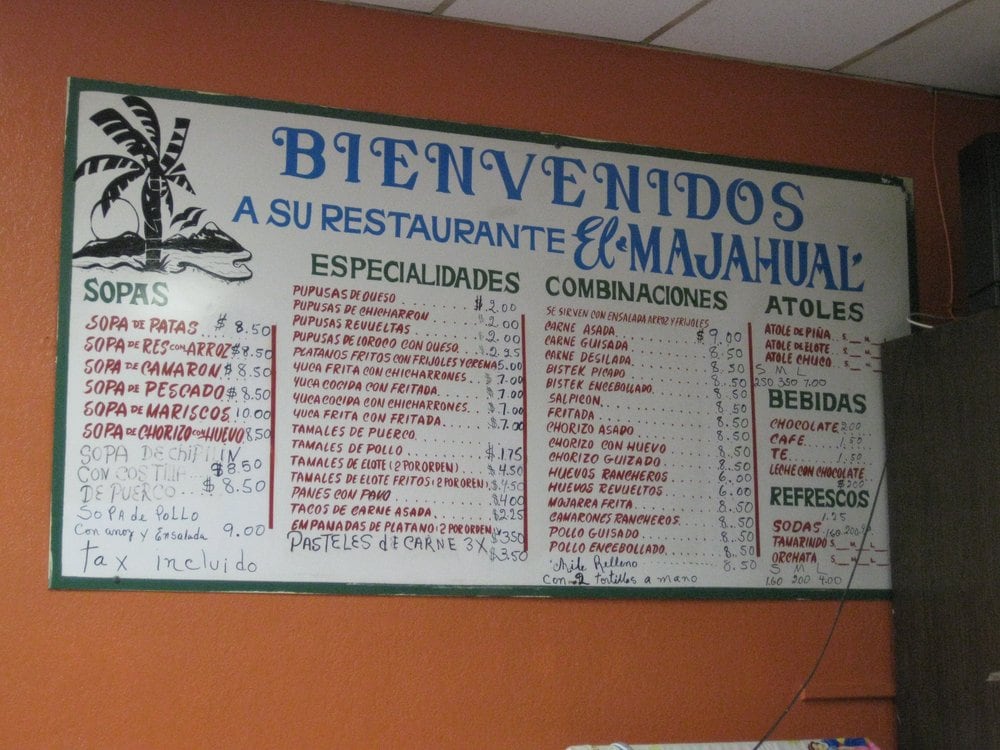 BIENVENIDOS
A SU RESTAURANTE El MAJAHUAL
SOPAS
SOPA DE PATAS $8.50
SOPA DE RES CON ARROZ $8.50
SOPA DE CAMARON $8.50
SOPA DE PESCADO $8.50
SOPA DE MARISCOS 10.00
SOPA DE CHORIZO CON HUEVO 8.50
SOPA DE CHIPILIN $8.50
CON COSTILLA
DE PUERCO $8.50
SOPA de POLLO
Con arroz y ensalada 9.00
tax incluido
ESPECIALIDADES
PUPUSAS DE QUESO $2.00
PUPUSAS DE CHICHARRON 2.00
PUPUSAS REVUELTAS 2.00
PUPUSAS DE LOROCO CON QUESO 2.25
PLATANOS FRITOS CON FRIJOLES Y CREMA 5.00
YUCA FRITA CON CHICHARRONES 7.00
YUCA COCIDA CON FRITADA 7.00
YUCA COCIDA CON CHICHARRONES 7.00
YUCA FRITA CON FRITADA $7.00
TAMALES DE PUERCO
TAMALES DE POLLO $1.75
TAMALES DE ELOTE (2 POR ORDEN) $4.50
TAMALES DE ELOTE FRITOS (2 POR ORDEN) $4.50
PANES CON PAVO $4.00
TACOS DE CARNE ASADA $2.25
EMPANADAS DE PLATANO (2 POR ORDEN) $3.50
PASTELES de CARNE 3X $3.50
COMBINACIONES
SE SIRVEN CON ENSALADA ARROZ Y FRIJOLES
CARNE ASADA $9.00
CARNE GUISADA 8.50
CARNE DESILADA 8.50
BISTEK PICADO 8.50
BISTEK ENCEBOLLADO 8.50
SALPICON 8.50
FRITADA 8.50
CHORIZO ASADO 8.50
CHORIZO CON HUEVO 8.50
CHORIZO GUIZADO 8.50
HUEVOS RANCHEROS 6.00
HUEVOS REVUELTOS 6.00
MOJARRA FRITA 8.50
CAMARONES RANCHEROS 8.50
POLLO GUISADO 8.50
POLLO ENCEBOLLADO 8.50
Chile Relleno 8.50
Con 2 tortillas a mano
ATOLES
ATOLE DE PIÑA $
ATOLE DE ELOTE $
ATOLE CHUCO $
S M L
250 350 7.00
BEBIDAS
CHOCOLATE 2.00
CAFE 1.50
TE 1.50
LECHE CON CHOCOLATE
$2.00
REFRESCOS
SODAS 1.25
TAMARINDO $
ORCHATA $
S M L
1.60 200 4.00